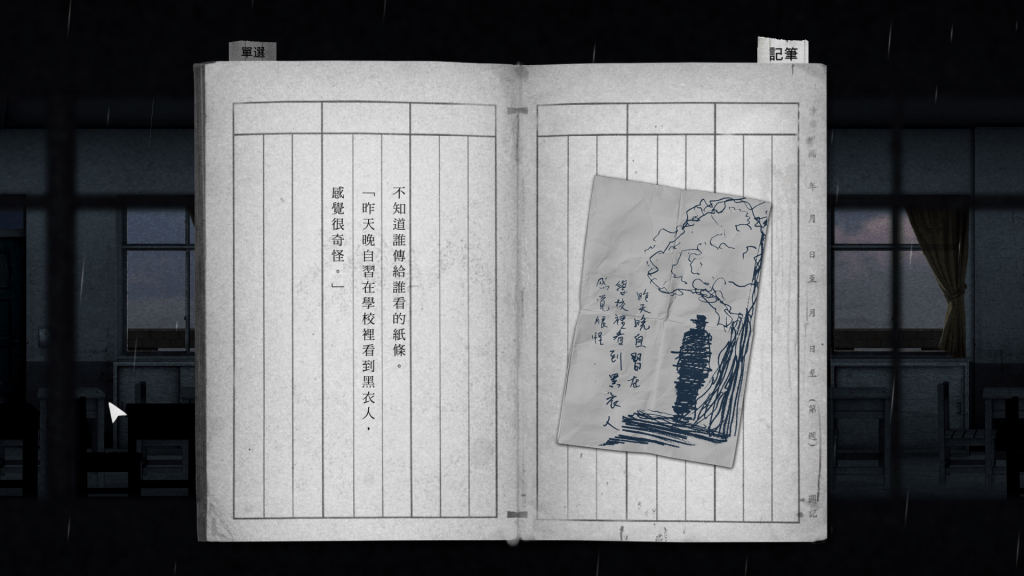 選單
筆記
年 月 日至 月 日至 (第 週) 週記
昨天晚自習在
學校裡看到黑衣人
感覺很怪
不知道誰傳給誰看的紙條。
「昨天晚自習在學校裡看到黑衣人，
感覺很奇怪。」